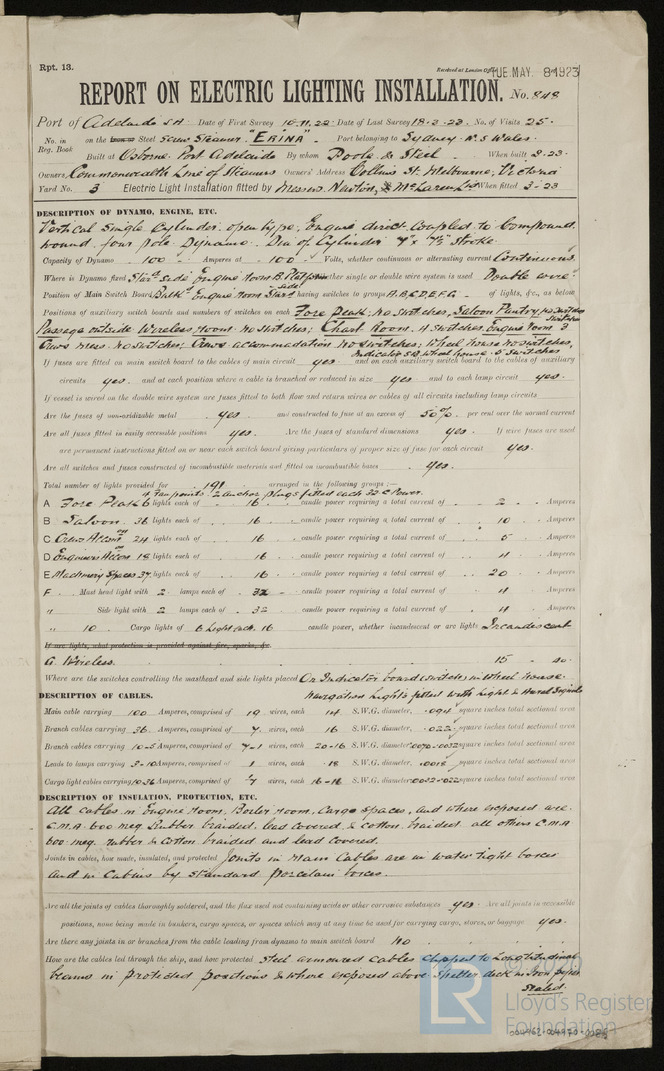 Rpt. 13.
Received at London Office TUE. MAY. 8 1923
REPORT ON ELECTRIC LIGHTING INSTALLATION. No. 848
Port of Adelaide S.A. Date of First Survey 10.11.22 Date of Last Survey 18.3.23 No. of Visits 25.
No. in Reg. Book on the Iron or Steel Screw Steamer "ERINA" Port belonging to Sydney N.S. Wales.
Built at Osborne Port Adelaide By whom Poole & Steel When built 3.23.
Owners Commonwealth Line of Steamers Owners' Address Collins St. Melbourne, Victoria
Yard No. 3 Electric Light Installation fitted by Messrs. Newton, & McLaren Ltd When fitted 3.23
DESCRIPTION OF DYNAMO, ENGINE, ETC.
Vertical Single Cylinder open type, Engine direct coupled to Compound
wound four pole Dynamo. Dia of Cylinder 7" x 7½" stroke.
Capacity of Dynamo 100 Amperes at 100 Volts, whether continuous or alternating current Continuous
Where is Dynamo fixed Starbd side Engine Room B. Platform Whether single or double wire system is used Double wire
Position of Main Switch Board Bulkd Engine Room Starbd side having switches to groups A, B, C, D, E, F, G of lights, &c., as below
Positions of auxiliary switch boards and numbers of switches on each Fore Peak, no switches, Saloon Pantry, no switches
Passage outside Wireless Room no switches; Chart Room. 4 switches. Engine Room 3
Crews mess. no switches; Crews accommodation no switches; Wheel house no switches,
Indicator S.B. Wheel house. 5 switches
If fuses are fitted on main switch board to the cables of main circuit yes and on each auxiliary switch board to the cables of auxiliary
circuits yes. and at each position where a cable is branched or reduced in size yes and to each lamp circuit yes.
If vessel is wired on the double wire system are fuses fitted to both flow and return wires or cables of all circuits including lamp circuits
Are the fuses of non-oxidizable metal yes and constructed to fuse at an excess of 50% per cent over the normal current
Are all fuses fitted in easily accessible positions yes. Are the fuses of standard dimensions yes. If wire fuses are used
are permanent instructions fitted on or near each switch board giving particulars of proper size of fuse for each circuit yes.
Are all switches and fuses constructed of incombustible materials and fitted on incombustible bases yes.
Total number of lights provided for 191 arranged in the following groups :—
4 Fan points. 2 anchor plugs fitted each 32 C. Power.
A Fore Peak 6 lights each of 16 candle power requiring a total current of 2 Amperes
B Saloon 36 lights each of 16 candle power requiring a total current of 10 Amperes
C Crews Accom 24 lights each of 16 candle power requiring a total current of 5 Amperes
D Engineers Accom 18 lights each of 16 candle power requiring a total current of 4 Amperes
E Machinery Spaces 37 lights each of 16 candle power requiring a total current of 20 Amperes
F Mast head light with 2 lamps each of 32 candle power requiring a total current of 4 Amperes
" Side light with 2 lamps each of 32 candle power requiring a total current of 4 Amperes
" 10 Cargo lights of 6 Light each. 16 candle power, whether incandescent or arc lights Incandescent
If arc lights, what protection is provided against fire, sparks, &c.
G. Wireless. 15 do.
Where are the switches controlling the masthead and side lights placed On Indicator board (switch) in Wheel house.
DESCRIPTION OF CABLES. Navigation Lights fitted with Light & Aural Signals
Main cable carrying 100 Amperes, comprised of 19 wires, each 14 S.W.G. diameter, .094 square inches total sectional area
Branch cables carrying 36 Amperes, comprised of 7 wires, each 16 S.W.G. diameter, .022 square inches total sectional area
Branch cables carrying 10-5 Amperes, comprised of 7-1 wires, each 20-16 S.W.G. diameter, .0070-.0032 square inches total sectional area
Leads to lamps carrying 3-10 Amperes, comprised of 1 wires, each 18 S.W.G. diameter, .0018 square inches total sectional area
Cargo light cables carrying 10-36 Amperes, comprised of 7 wires, each 16-16 S.W.G. diameter square inches total sectional area
DESCRIPTION OF INSULATION, PROTECTION, ETC.
All cables in Engine Room, Boiler room, Cargo Spaces, and where exposed are
C.M.A. 600 meg. Rubber braided, lead covered & cotton braided. all others C.M.A
600 meg. rubber & Cotton braided and lead covered.
Joints in cables, how made, insulated, and protected Joints in Main Cables are in water tight boxes
and in Cabins by standard porcelain boxes.
Are all the joints of cables thoroughly soldered, and the flux used not containing acids or other corrosive substances yes. Are all joints in accessible
positions, none being made in bunkers, cargo spaces, or spaces which may at any time be used for carrying cargo, stores, or baggage yes.
Are there any joints in or branches from the cable leading from dynamo to main switch board No
How are the cables led through the ship, and how protected Steel armoured cables clipped to Longitudinal
beams in protected positions & where exposed above shelter deck in iron pipes
sealed.
© 2020
LR
Lloyd's Register
Foundation
004962-004970-0086